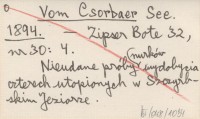 Vom Csorbaer See.
1894. — Zipser Bote 32,
nr 30: 4.
Nieudane próby (nurków) wydobycia
czterech utopionych w Szczyrb-
skim Jeziorze.